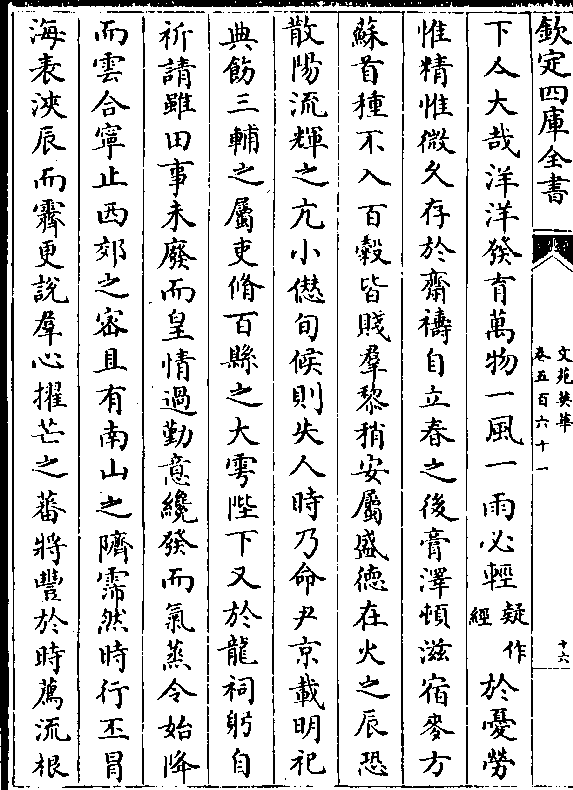 欽定四庫全書
文苑英華
卷五百六十一
十六
下人大哉洋洋發育萬物一風一雨必輕疑作經於憂勞
惟精惟微久存於齋禱自立春之後膏澤頓滋宿麥方
蘇首種不入百穀皆賤羣黎稍安屬盛德在火之辰恐
散陽流輝之亢小僽旬候則失人時乃命尹京載明祀
典飭三輔之屬吏脩百縣之大雩陛下又於龍祠躬自
祈請雖田事未廢而皇情過勤意纔發而氣蒸令始降
而雲合寧止西郊之密且有南山之隮霈然時行丕冒
海表浹辰而霽更説羣心擢芒之蕃將豐於時薦流根